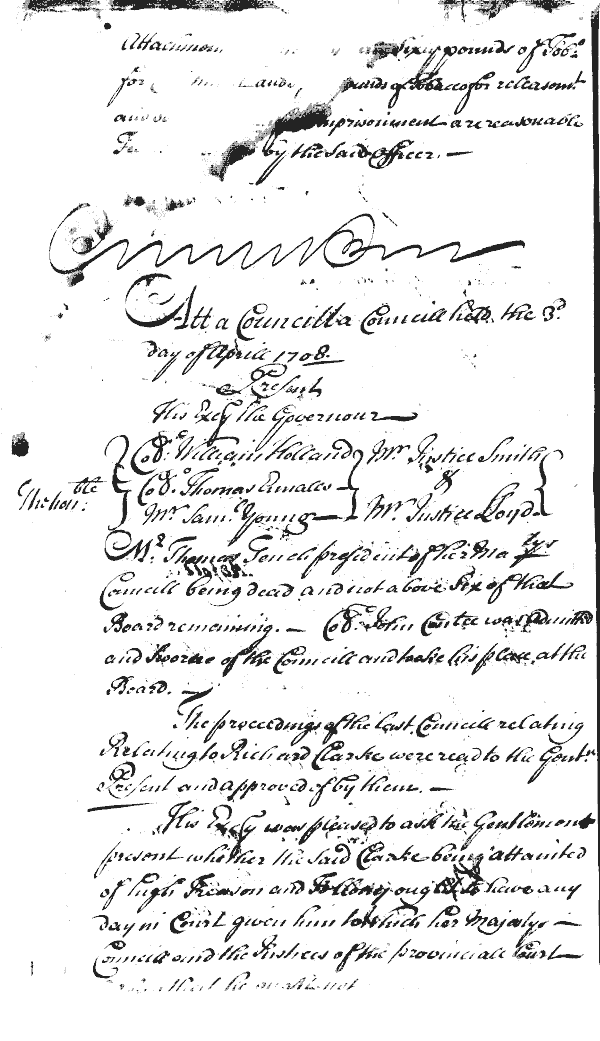 Attachment sixty pounds of Tobo
for pounds of Tobacco for releasemt
and imprisonment are reasonable
by the said Officer. —
Att a Councill a Councill held the 3d.
day of Aprill 1708.
Present
His Excy the Governour —
Collo. William Holland Mr. Justice Smith
The honble: Collo. Thomas Ennalls — &
Mr. Saml. Young — Mr. Justice Loyd.
Mr. Thomas Tench president of her Matys
Councill being dead and not above Six of that
Board remaining. — Collo. John Contee was admitted
and Sworne of the Councill and tooke his place at the
Board. —
The proceedings of the last Councill relating
Relating to Richard Clarke were read to the Gentn.
Present and approved of by them. —
His Excy was pleased to ask the Gentlemen
present whether the said Clarke being attainted
of high Treason and Fellony ought to have any
day in Court given him to which her Majestys —
Councill and the Justices of the provinciall Court —
that he ought not